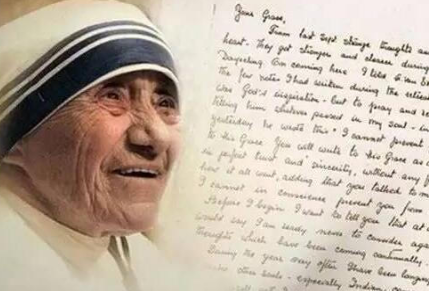 Your Grace,
From last Sept strange thoughts and
heart. They got stronger and clearer during
Darjeeling. On coming here I like
the few notes I had written during the retreat
was God's inspiration - but to pray and re
telling him whatever passed in my soul - in
yesterday he wrote this "I cannot prevent
to His Grace. You will write to His Grace as a
in perfect trust and sincerity, without any f
how it all went, adding that you talked to m
I cannot in conscience prevent you from
Before I begin I want to tell you that at
would say I am ready never to consider again
thoughts which have been coming continually.
During the year very often I have been longing
other souls - especially Indian, com